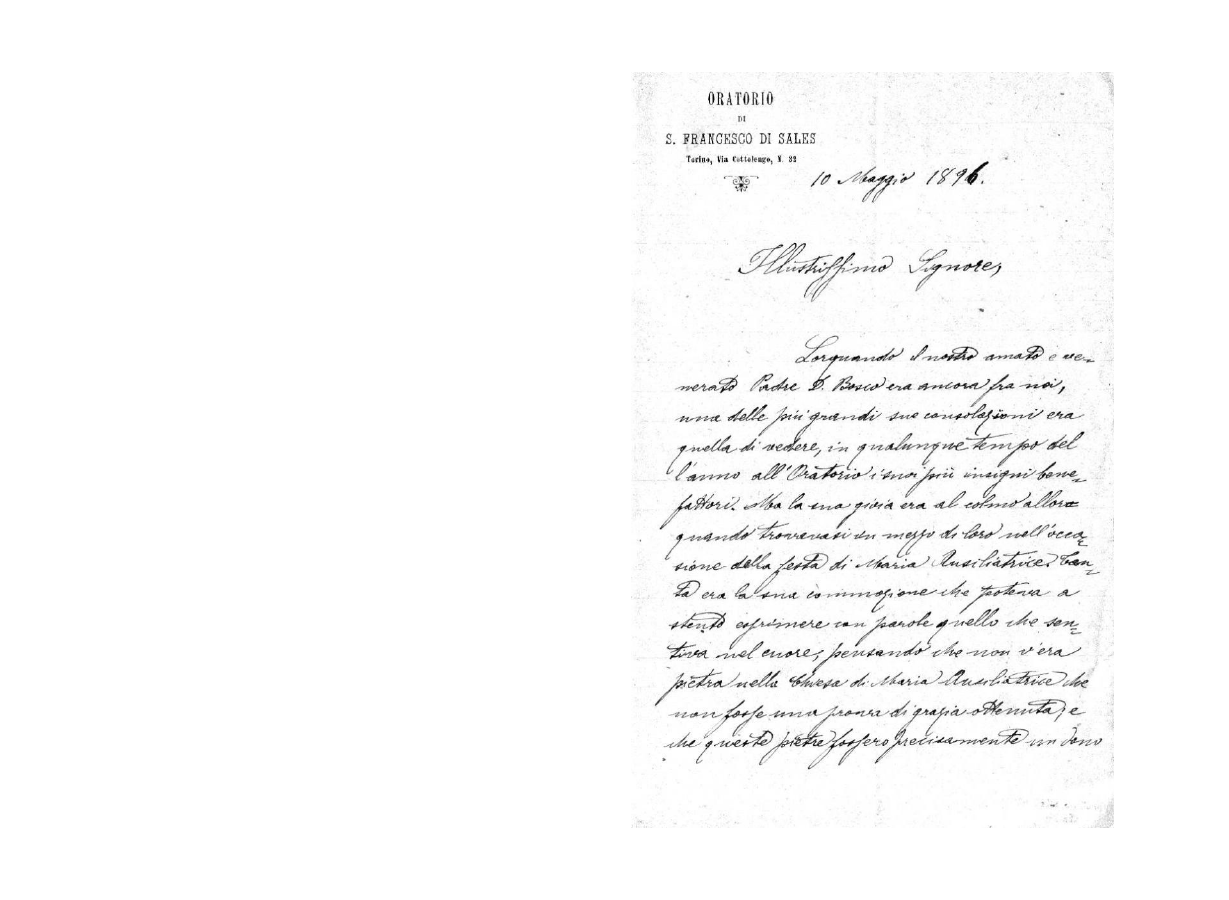 ORATORIO
DI
S. FRANCESCO DI SALES
Torino, Via Cottolengo, N. 32
10 Maggio 1896.
Illustrissimo Signore,
Lorquando il nostro amato e ve-
nerato Padre D. Bosco era ancora fra noi,
una delle più grandi sue consolazioni era
quella di vedere, in qualunque tempo del
l'anno all'Oratorio i suoi più insigni bene-
fattori. Ma la sua gioia era al colmo allora
quando trovavasi in mezzo di loro nell'occa-
sione della festa di Maria Ausiliatrice. Tan-
ta era la sua commozione che poteva a
stento esprimere con parole quello che sen-
tiva nel cuore, pensando che non v'era
pietra nella Chiesa di Maria Ausiliatrice che
non fosse una prova di grazia ottenuta, e
che queste pietre fossero precisamente un dono